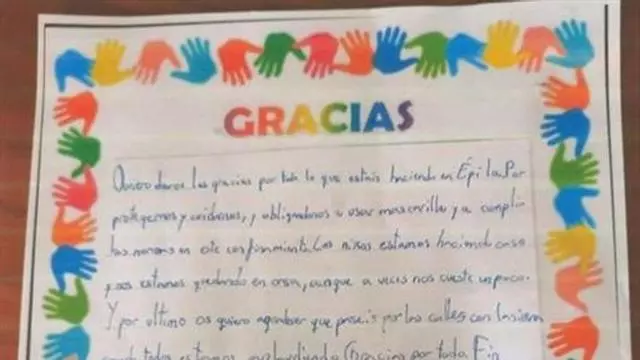 GRACIAS
Quiero daros las gracias por todo lo que estais haciendo en Épila. Por
protegernos y cuidarnos, y obligandonos a usar mascarillas y a cumplir
las normas en este confinamiento. Los niños estamos haciendo caso
y nos estamos quedando en casa, aunque a veces nos cueste un poco.
Y por ultimo os quiero agradecer que paseis por las calles con las sirenas
cuando todos estamos aplaudiendo. Gracias por todo. Fin